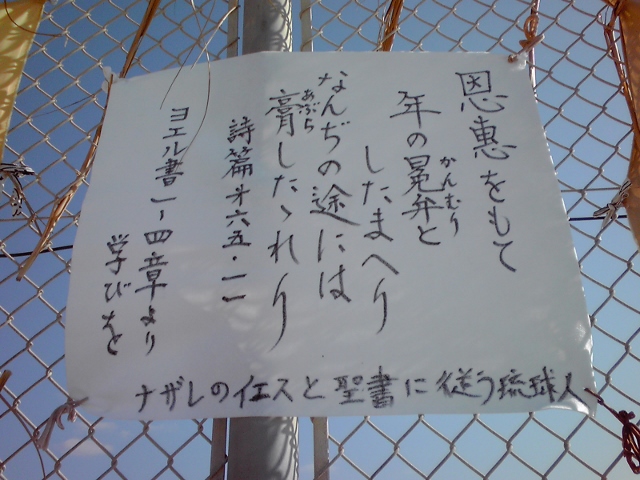 恩惠をもて
年の冕弁と
かんむり
したまへり
なんぢの途には
膏したゝれり
あぶら
詩篇㐧六五・一一
ヨエル書一~四章より
学びもと
ナザレのイエスと聖書に従う琉球人